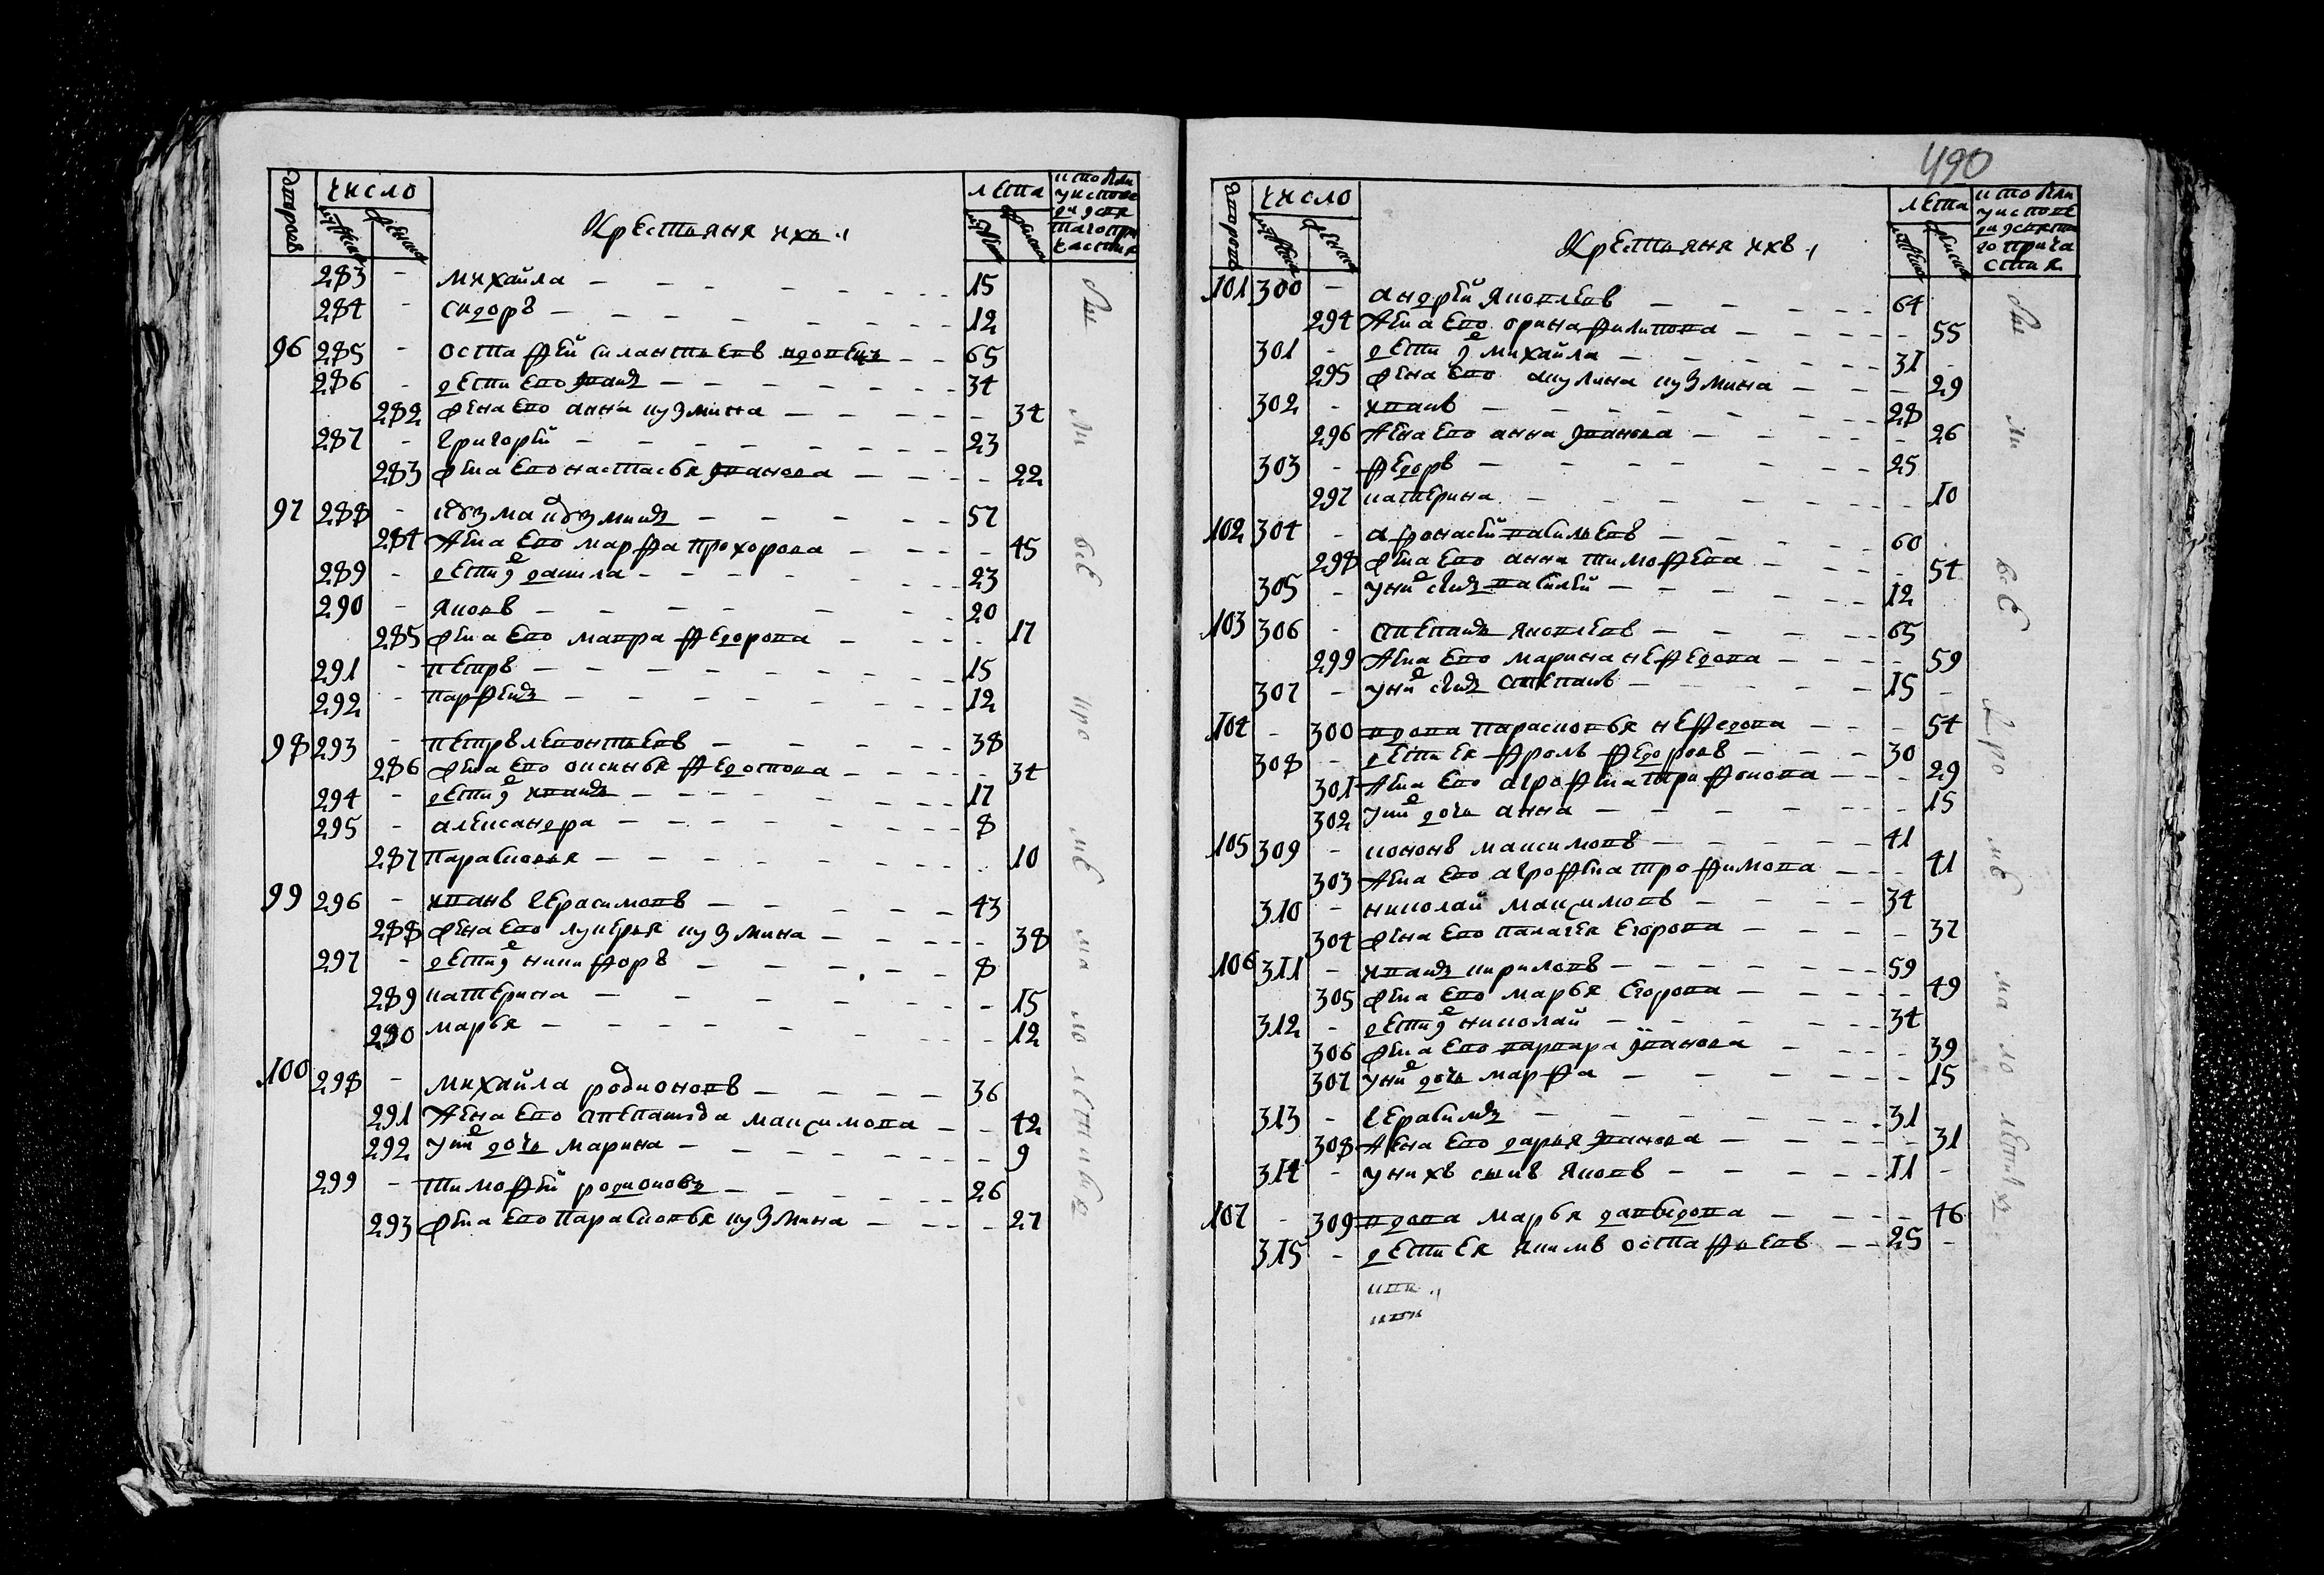 число
лета
Крестьяня ихъ
283 - михайла - 15
284 - сидоръ - 12
96 285 - остафей силантьевъ вдовецъ - 65
286 - дети ево иванъ - 34
282 жена ево анна кузмина - 34
287 - григорей - 23
283 жена ево настасья иванова - 22
97 288 - кузма кузминъ - 57
284 жена ево марфа прохорова - 45
289 - дети данила - 23
290 - яковъ - 20
285 жена ево мавра федорова - 17
291 - петръ - 15
292 - парфенъ - 12
98 293 - петръ леонтьевъ - 38
286 жена ево аксинья федотова - 34
294 - дети иванъ - 17
295 - александра - 8
287 парасковья - 10
99 296 - иванъ герасимовъ - 43
288 жена ево лукерья кузмина - 38
297 - дети никифоръ - 8
289 катерина - 15
290 марья - 12
100 298 - михайла родионовъ - 36
291 жена ево степанида максимова - 42
292 дочь марина - 9
299 - тимофей родионовъ - 26
293 жена ево парасковья кузмина - 27
490
число
лета
Крестьяня ихъ
101 300 - андрей яковлевъ - 64
294 жена ево орина филипова - 55
301 - дети михайла - 31
295 жена ево акулина кузмина - 29
302 - иванъ - 28
296 жена ево анна иванова - 26
303 - федоръ - 25
297 катерина - 10
102 304 - афонасей васильевъ - 60
298 жена ево анна тимофева - 54
305 - сынъ василей - 12
103 306 - степанъ яковлевъ - 65
299 жена ево марина нефедова - 59
307 - сынъ степанъ - 15
104 - 300 вдова парасковья нефедова - 54
308 - дети ея фролъ федоровъ - 30
301 жена ево агрофена трифонова - 29
302 дочь анна - 15
105 309 - кононъ максимовъ - 41
303 жена ево агрофена трофимова - 41
310 - николай максимовъ - 34
304 жена ево палагея егорова - 37
106 311 - иванъ кириловъ - 59
305 жена ево марья егорова - 49
312 - дети николай - 34
306 жена ево варвара иванова - 39
307 дочь марфа - 15
313 - герасимъ - 31
308 жена ево дарья иванова - 31
314 - у нихъ сынъ яковъ - 11
107 - 309 вдова марья давыдова - 46
315 - дети ея якимъ остафьевъ - 25